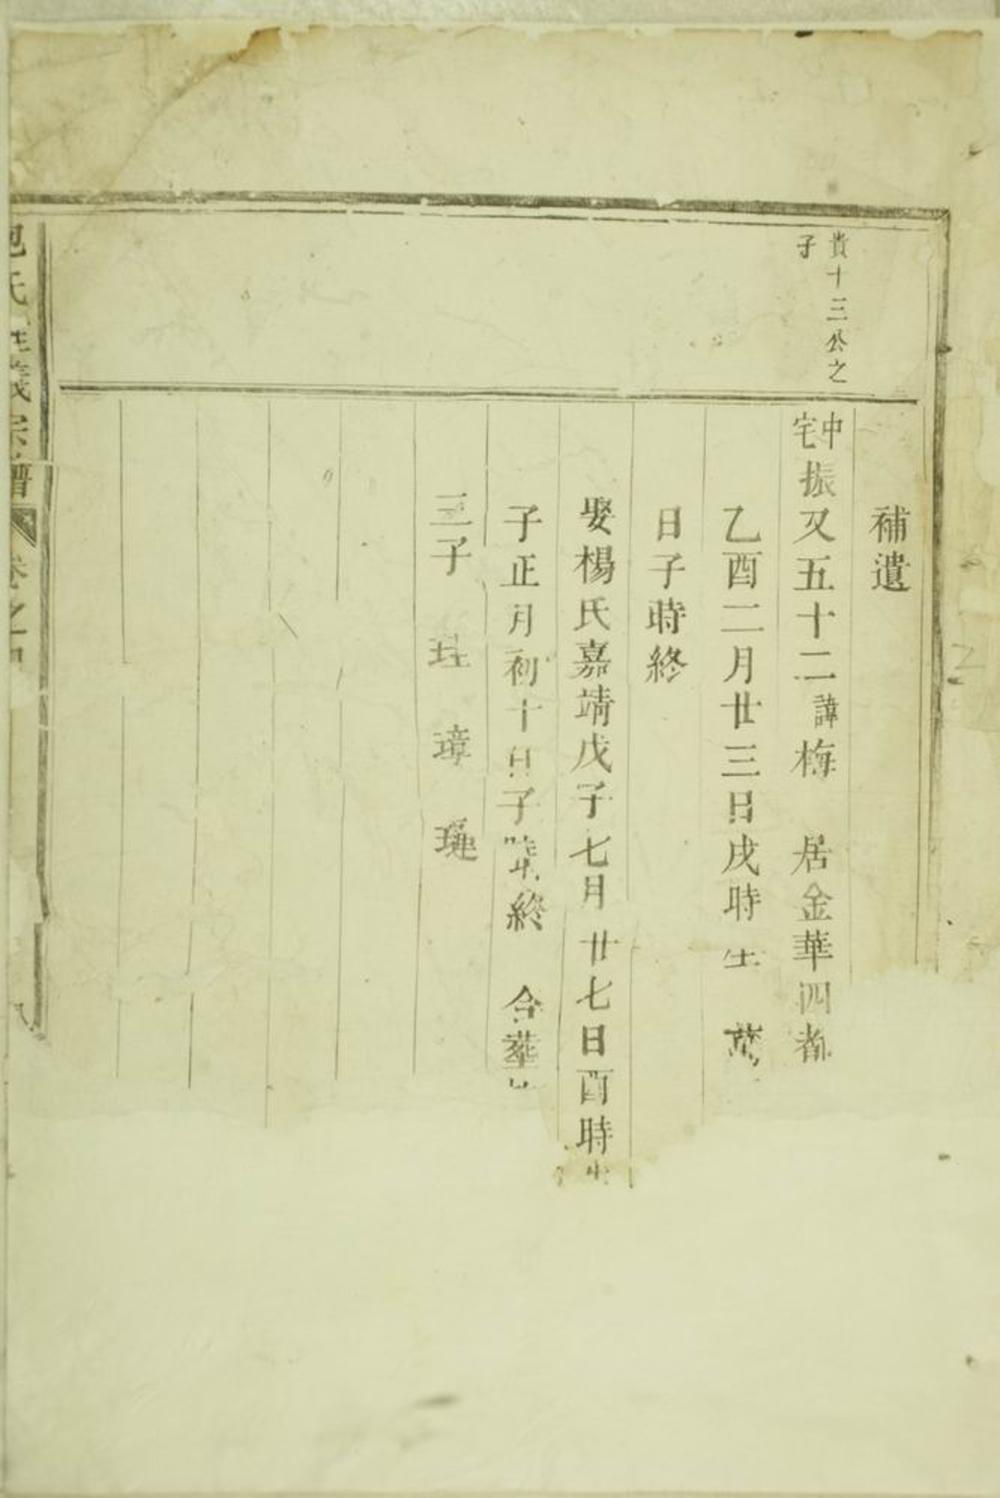 補遺
貴十三公之
子
中宅振又五十二諱梅 居金華四都
乙酉二月廿三日戌時生 萬
日子時終
娶楊氏嘉靖戊子七月廿七日酉時生
子正月初十日子時終 合葬
三子 珪 璋 璉
包氏 義宗譜 卷之四